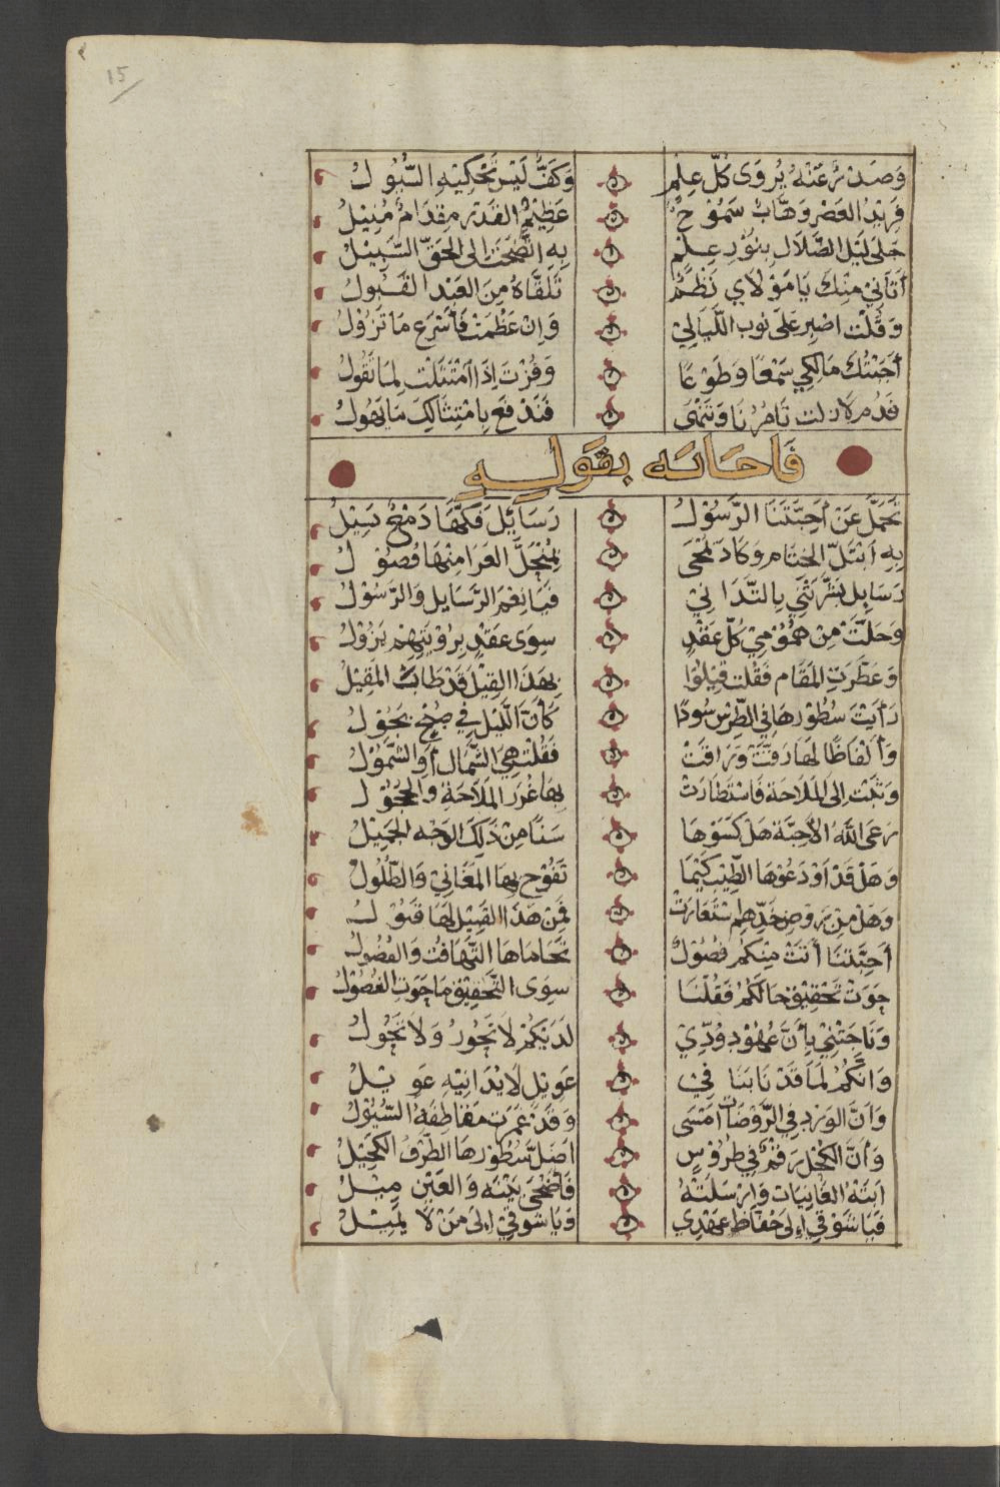 15
وَصَدْرٌ عَنْهُ يُرْوَى كُلُّ عِلْمٍ وَكَفٌّ لَيْسَ تَحْكِيْهِ السُّيُولُ
فَرِيْدُ العَصْرِ وَهَّابٌ سَمُوْحٌ عَظِيْمُ القَدْرِ مِقْدَامٌ مُنِيْلُ
جَلَى لَيْلَ الضَّلَالِ بِنُوْرِ عِلْمٍ بِهِ اتَّضَحَتْ الى الحَقِّ السَّبِيْلُ
أَتَانِيْ مِنْكَ يَا مَوْلَاي نَظْمٌ تَلَقَّاهُ مِنَ العَبْدِ القَبُولُ
وَقُلْتَ اصْبِر عَلَى نوب اللَّيَالِيْ وَاِنْ عَظُمَتْ فَأَسْرَع مَا تَزُوْلُ
أَجَبْتُكَ مَالِكِي سَمْعًا وَطَوْعًا وَفُزْتَ اِذَا امْتَثَلْتَ لِمَا تَقُولُ
فَدُمْ لَا زِلْتَ تَامُرُنَا وَتَنْهَى فَنَدْفَع بِامْتِثَالِكَ مَا يَهُولُ
فَاجَابَه بقَولِهِ
تَحَمَّلَ عَنْ أَحِبَّتِنَا الرَّسُوْلُ رَسَايِلَ فَكَّهَا دَمْعٌ يَسِيْلُ
بِهِ ابْتَلَّ الخِتَام وَكَادَ تُمْحَى لِمُنْهَلِّ العَرَا مِنْهَا فُصُوْلُ
رَسَايِل بَشَّرَتْنِي بِالتَّدَانِيْ فَيَا نِعْمَ الرَّسَايِل وَالرَّسُوْلُ
وَحَلَّتْ مِنْ هُمُوْمِيْ كُلَّ عَقْدٍ سِوَى عَقْدٍ بِرُؤيَتِهِمْ يَزُوْلُ
وَعَطَّرَتِ المَقَام فَقُلْت قِيْلُوْا بِهَذَا القِيْلِ قَدْ طَابَ المَقِيْلُ
رَأيْتُ سُطُوْرهَا فِي الطِّرْسِ سُودًا كَأنَّ اللَّيْل فِي صُبْحٍ يَجُوْلُ
وَألْفَاظًا لَهَا رَقَّتْ وَرَاقَتْ فَقُلْتُ هِيَ الشَّمَال أَو الشَّمُوْلُ
وَثَبَتْ اِلى المَلَاحَة فَاسْتَطَارَتْ بِهَا غُرَر المَلَاحَةِ وَالحُجُوْلُ
رَعَى اللَّهُ الأَحِبَّة هَلْ كَسَوْهَا سَنًا مِنْ ذَلِكَ الوَجْه الجَمِيْلُ
وَهَلْ قَدْ أوْدَعُوْهَا الطِّيْب كَيْمَا تَفُوْح بِهَا المَغَانِيْ وَالطُّلُولُ
وَهَلْ مِنْ رَوضِ خَدِّهِم اسْتَعَارَتْ فَمِنْ هَذَا القَبِيْل لَهَا قَبُوْلُ
أَحِبَّتنَا أَتَتْ مِنْكُم فُصُوْلٌ تَحَامَاهَا التَّهَافُت وَالفُضُولُ
حَوَتْ تَحْقِيْق حَالَكُمُ فَقُلْنَا سِوَى التَّحْقِيْقِ مَا حَوَتِ الفُصُوْلُ
وَنَاجَتْنِيْ بِأنَّ عُهُوْد وُدِّيْ لَدَيْكُمْ لَا تَحُورُ وَلَا تَحُولُ
وَانَّكُمُ لِمَا قَدْ نَابَنَا فِيْ عَوِيْلٍ لَا يُدَانِيْهِ عَوِيْلُ
وَاَنَّ الوَرْد فِي الرَّوْضَات أمْسَى وَقَدْ غَمَرَتْ مَقَاطِفَهُ السُّيُوْلُ
وَأنَّ الكُحْل رَقْمٌ فِي طُرُوْسٍ أَضَلّ سُطُوْرهَا الطَّرْفُ الكَحِيْلُ
أبَتْهُ الغَانِيَات وَاَرْسَلَتْهُ فَأَضْحَى بَيْنَه وَالعَيْن مِيْلُ
فَيَا شَوْقِي اِلى حُفَّاظِ عَهْدِي وَيَا شَوْقِيْ اِلَى مَنْ لَا يَمِيْلُ